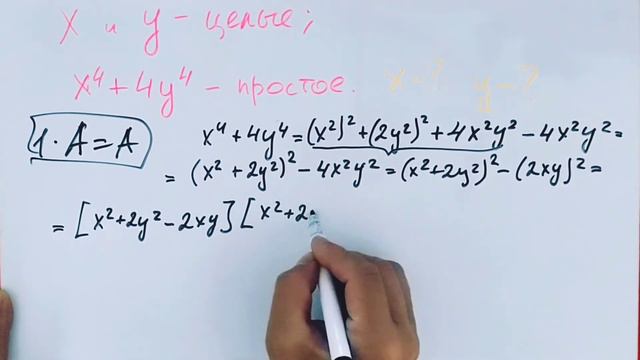 x и y - целые;
x⁴ + 4y⁴ - простое. x - ? y - ?
1 · A = A
x⁴ + 4y⁴ = (x²)² + (2y²)² + 4x²y² - 4x²y² =
= (x² + 2y²)² - 4x²y² = (x² + 2y²)² - (2xy)² =
= [x² + 2y² - 2xy] [x² + 2